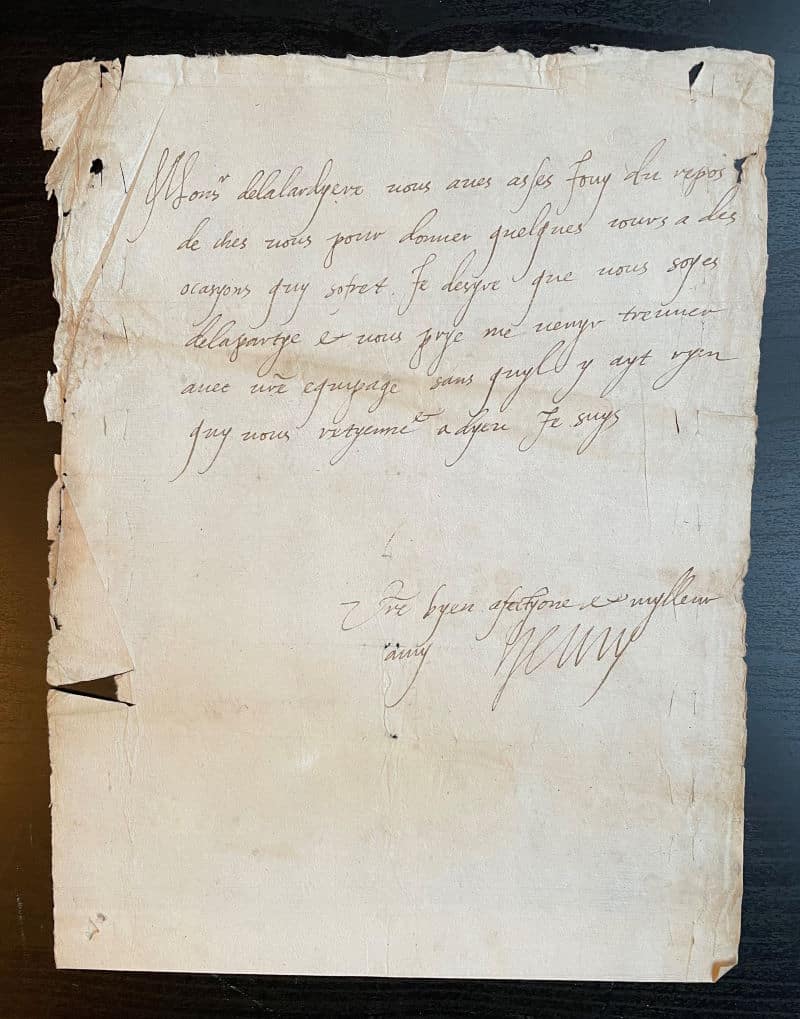 Monsr delalardyere vous aves asses Jouy du repos
de ches vous pour donner quelques iours a des
ocasyons quy sofret. Je desyre que vous soyes
delapartye & vous prye me venyr treuver
avec vre equipage sans quyl y ayt ryen
quy vous retyenne & adyeu Je suys
Vre byen afectyone & mylleur
amy Henry